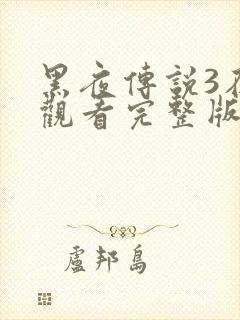 黑夜傳説3在
觀看完整版
盧邦島